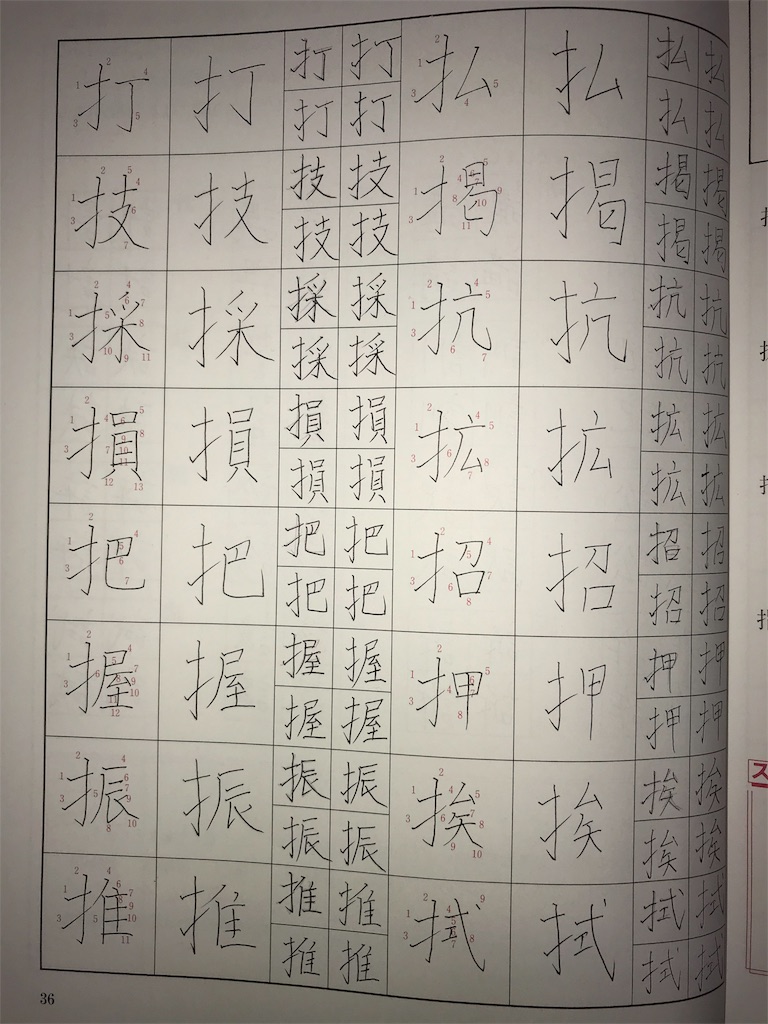 打 打 打 打 払 払 払 払
打 打 払 払
技 技 技 技 掲 掲 掲 掲
技 技 掲 掲
採 採 採 採 抗 抗 抗 抗
採 採 抗 抗
損 損 損 損 拡 拡 拡 拡
損 損 拡 拡
把 把 把 把 招 招 招 招
把 把 招 招
握 握 握 握 押 押 押 押
握 握 押 押
振 振 振 振 挨 挨 挨 挨
振 振 挨 挨
推 推 推 推 拭 拭 拭 拭
推 推 拭 拭
36